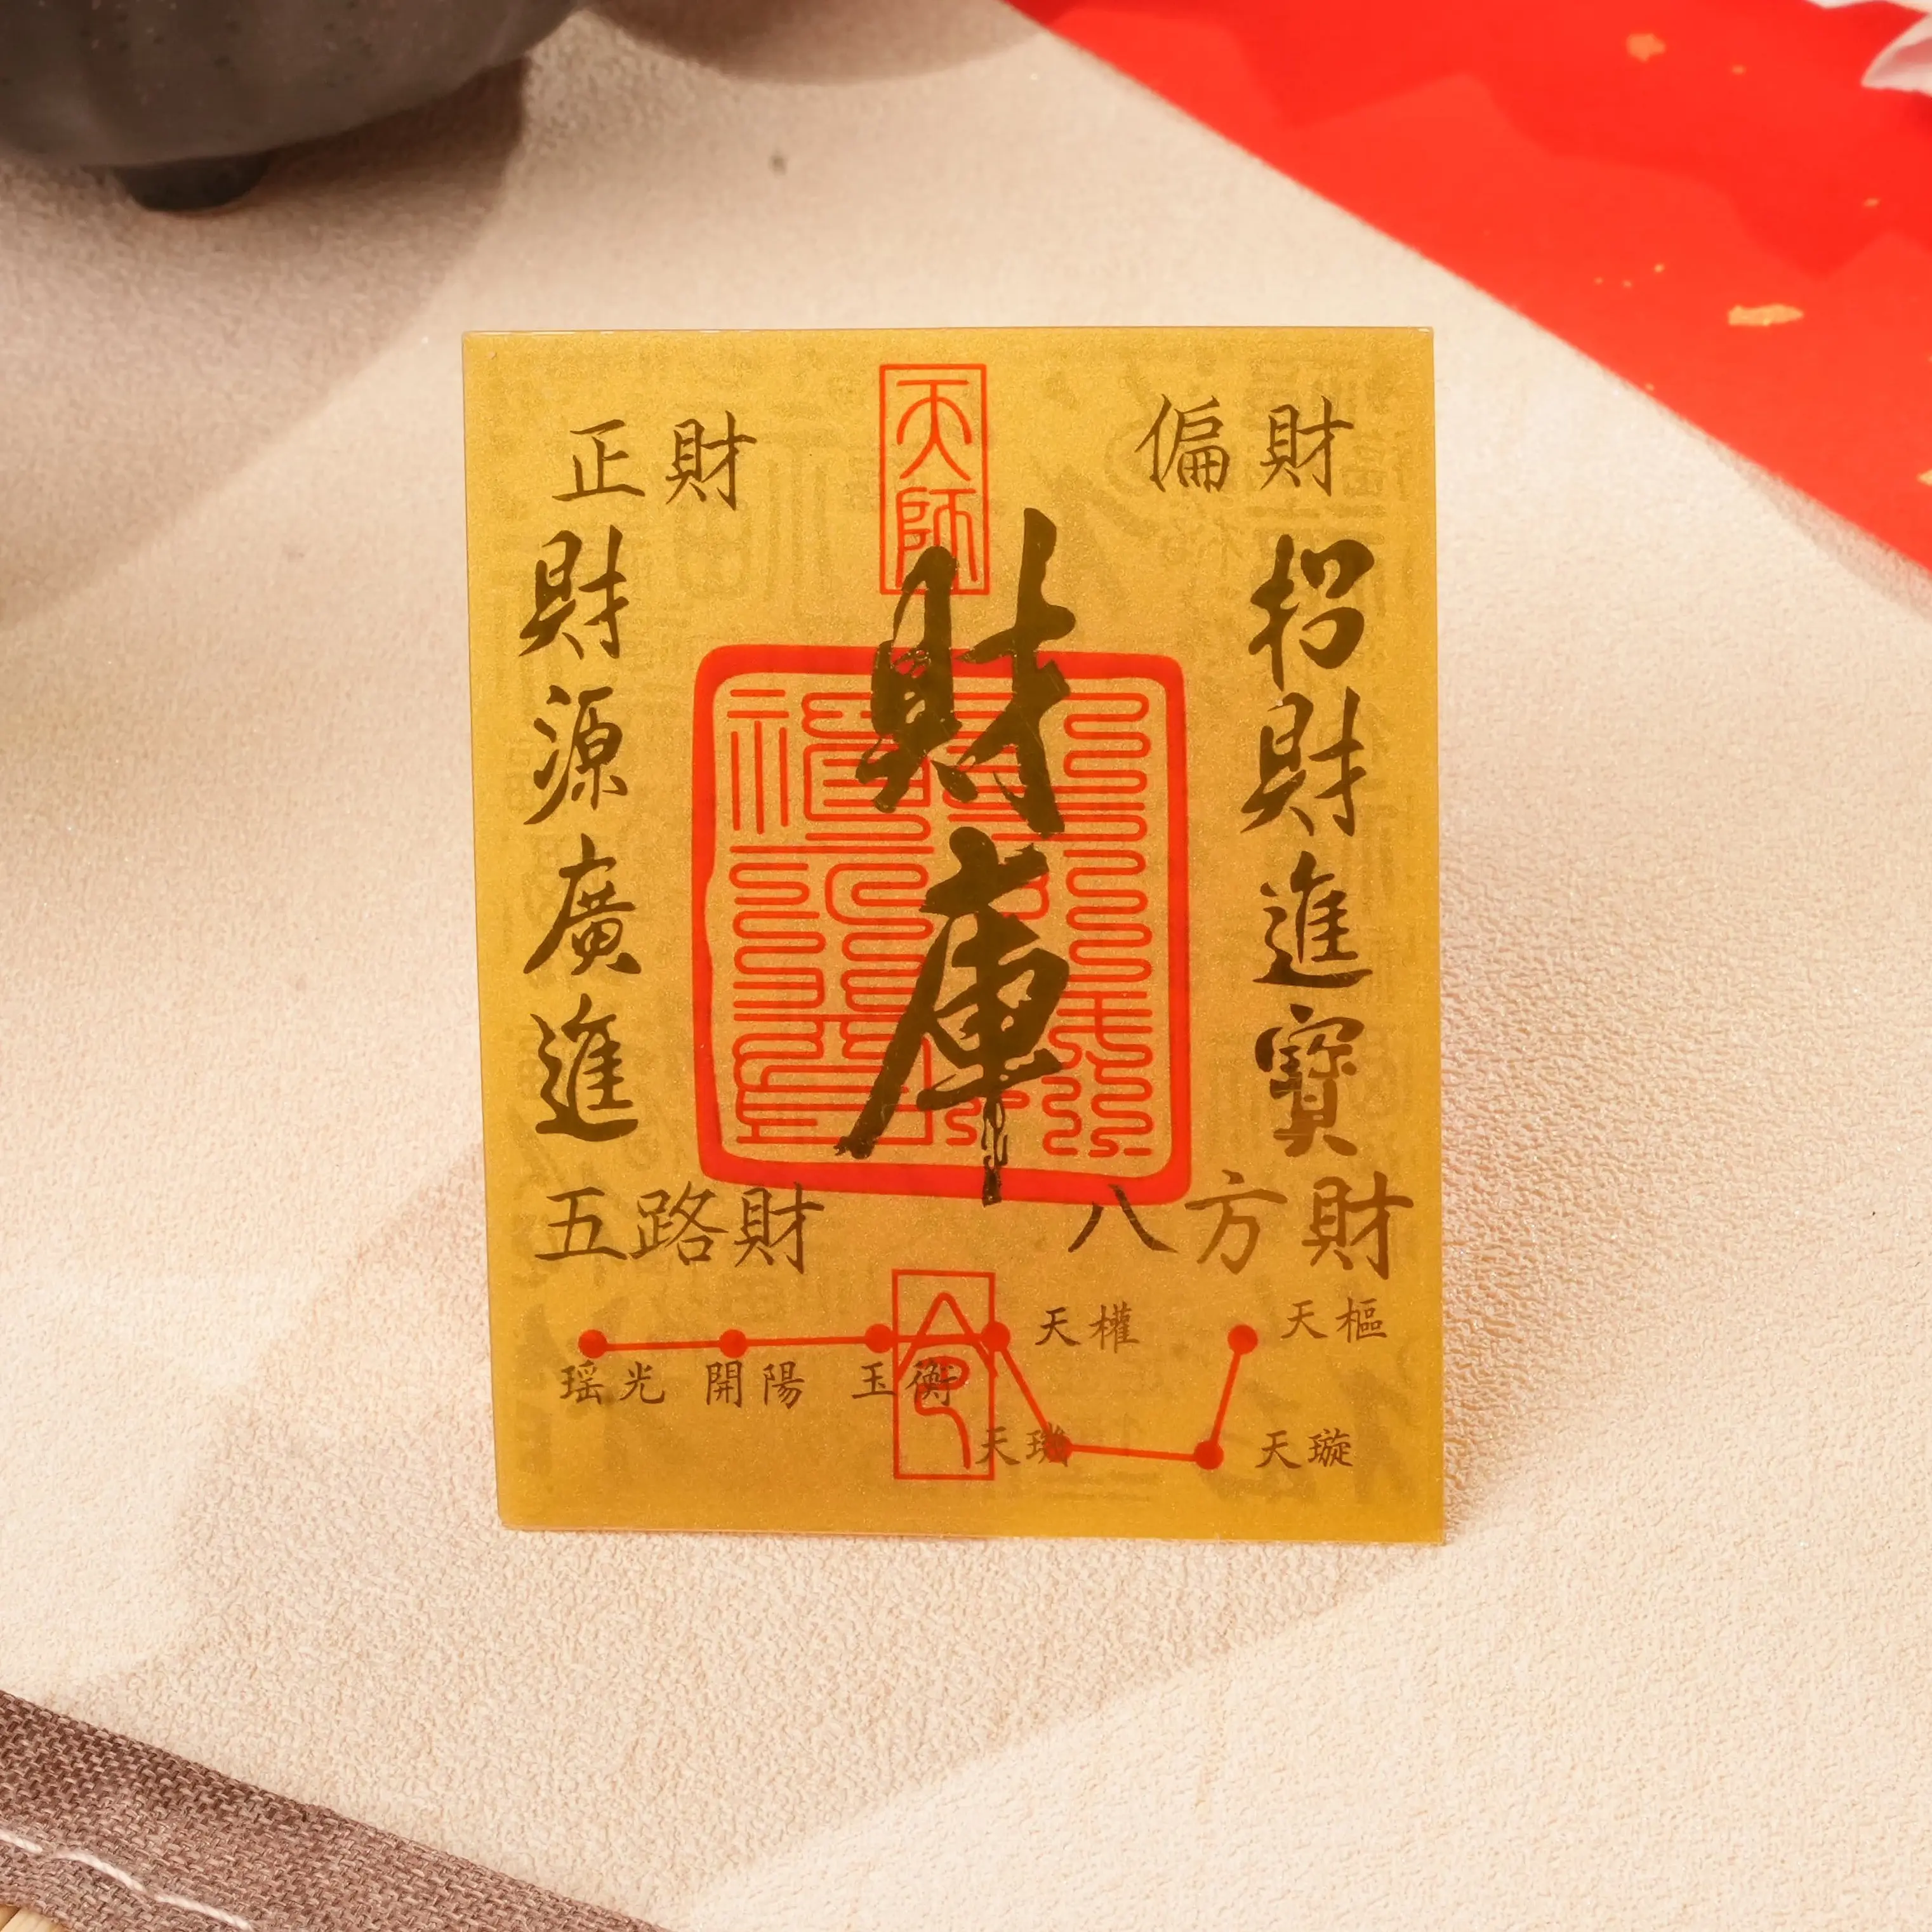 天師
正財
偏財
財庫
招財進寶
財源廣進
五路財
八方財
天權
天樞
瑤光 開陽 玉衡
天璇
令